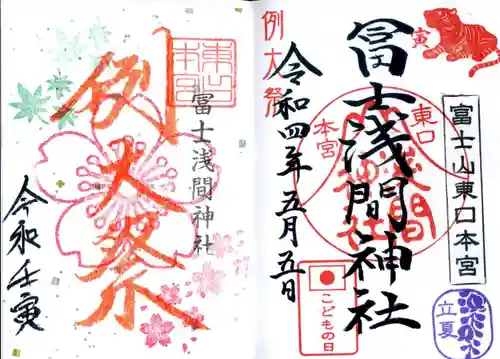 例大祭
令和四年五月五日
冨士浅間神社
寅
東口
本宮
富士山東口本宮
こどもの日
立夏
東口
本宮
冨士浅間神社
例大祭
令和壬寅